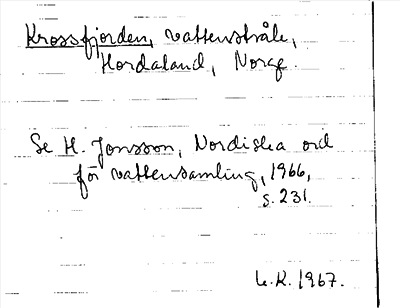 Krossfjorden, vattenstråle,
Hordaland, Norge.
Se H. Jonsson, Nordiska ord
för vattensamling, 1966,
s. 231.
L.R. 1967.